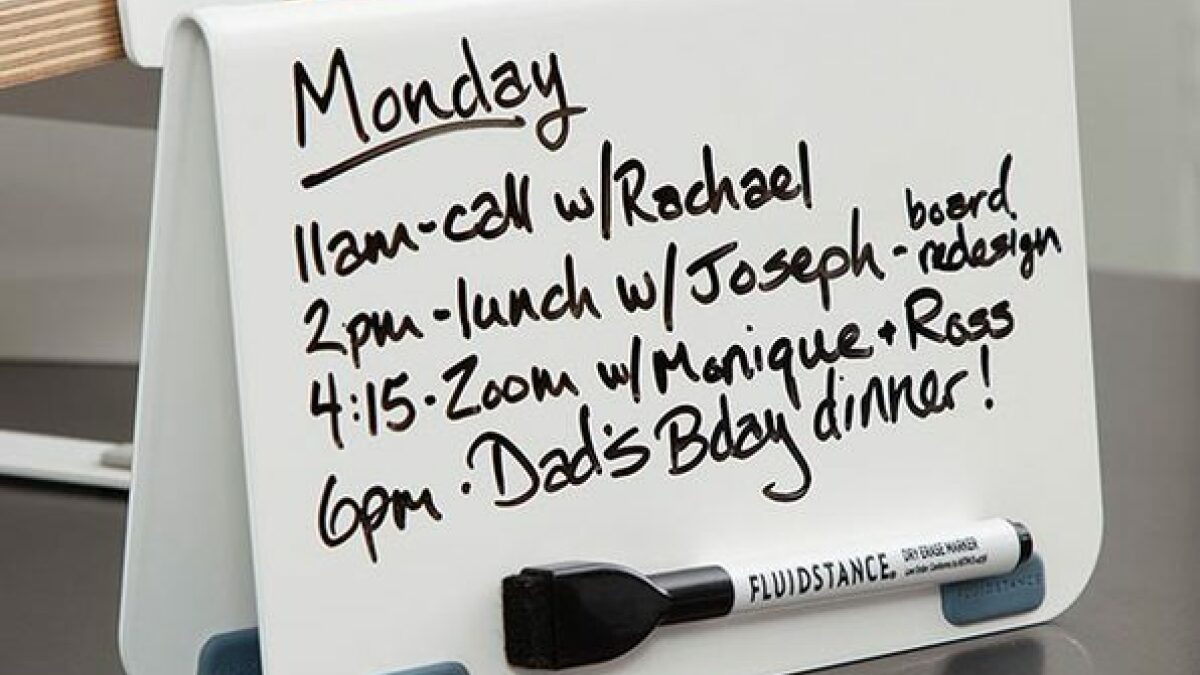 Monday
11am-call w/Rachael
2pm-lunch w/Joseph - board redesign
4:15-Zoom w/Monique + Ross
6pm - Dad's Bday dinner!
FLUIDSTANCE. DRY ERASE MARKER
FLUIDSTANCE